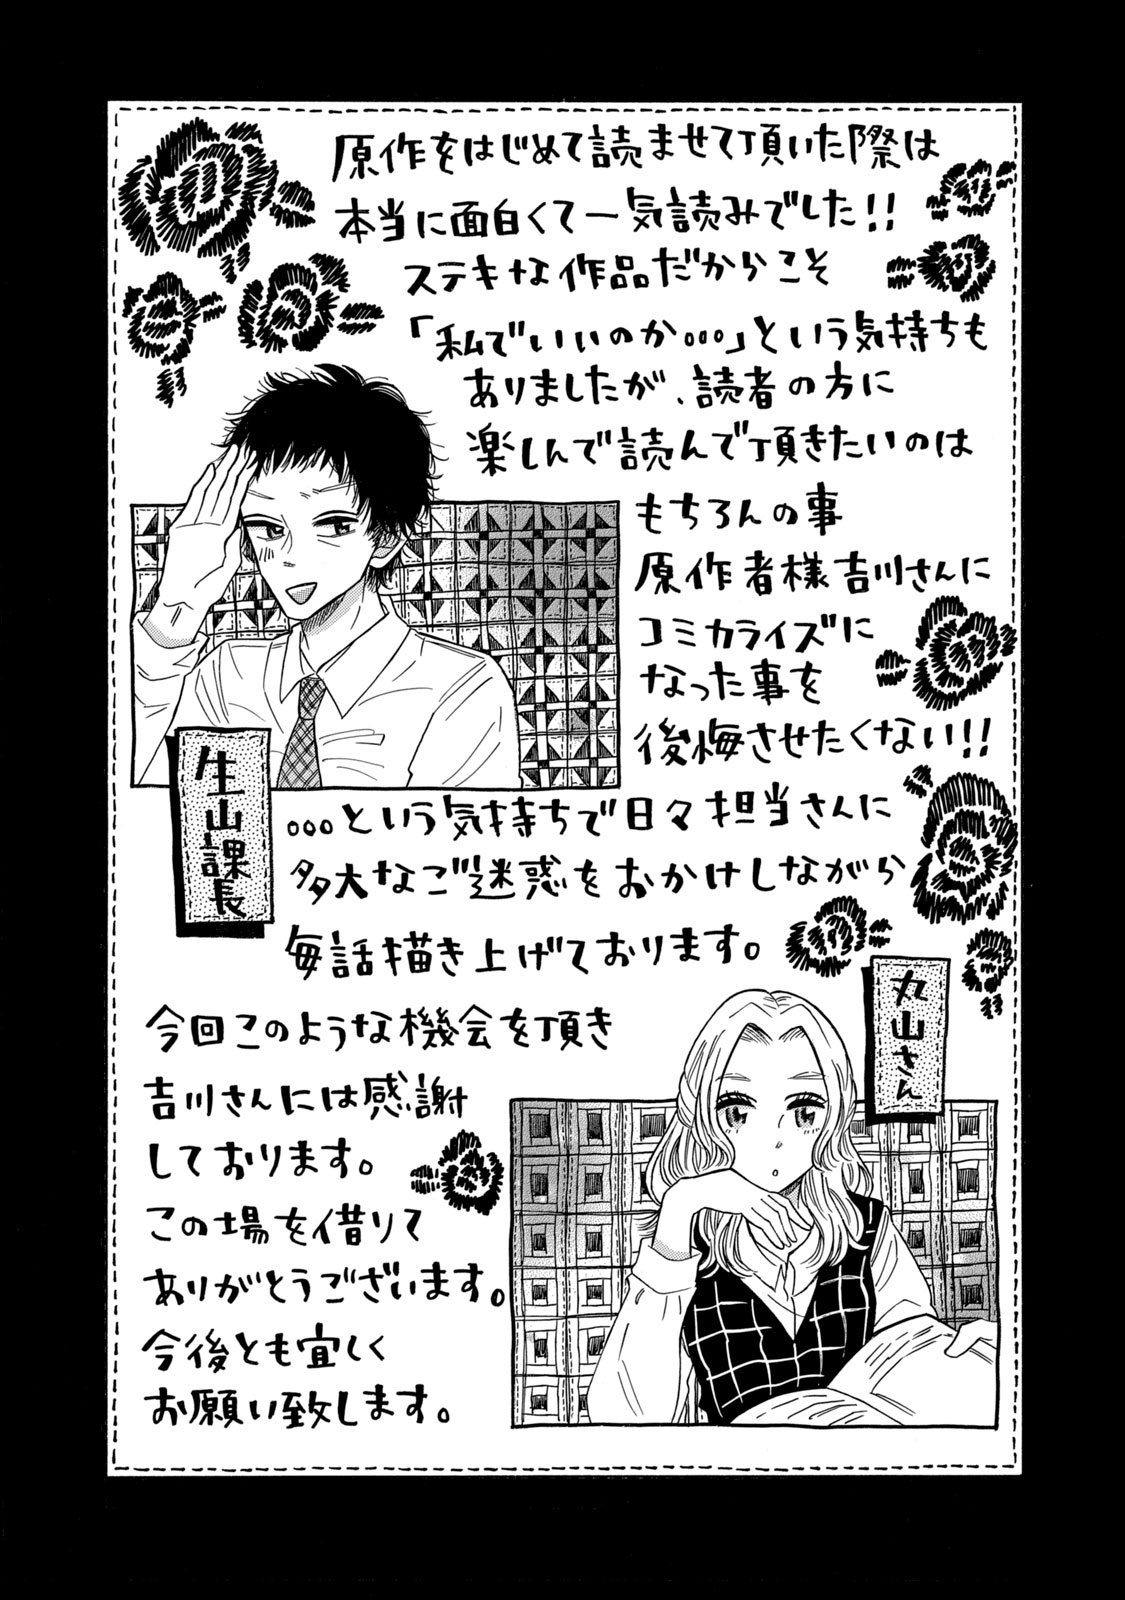 原作をはじめて読ませて頂いた際は
本当に面白くて一気読みでした!!
ステキな作品だからこそ
「私でいいのか...」という気持ちも
ありましたが、読者の方に
楽しんで読んで頂きたいのは
もちろんの事
原作者様吉川さんに
コミカライズに
なった事を
後悔させたくない!!
...という気持ちで日々担当さんに
多大なご迷惑をおかけしながら
毎話描き上げております。
今回このような機会を頂き
吉川さんには感謝
しております。
この場を借りて
ありがとうございます。
今後とも宜しく
お願い致します。
生山課長
丸山さん